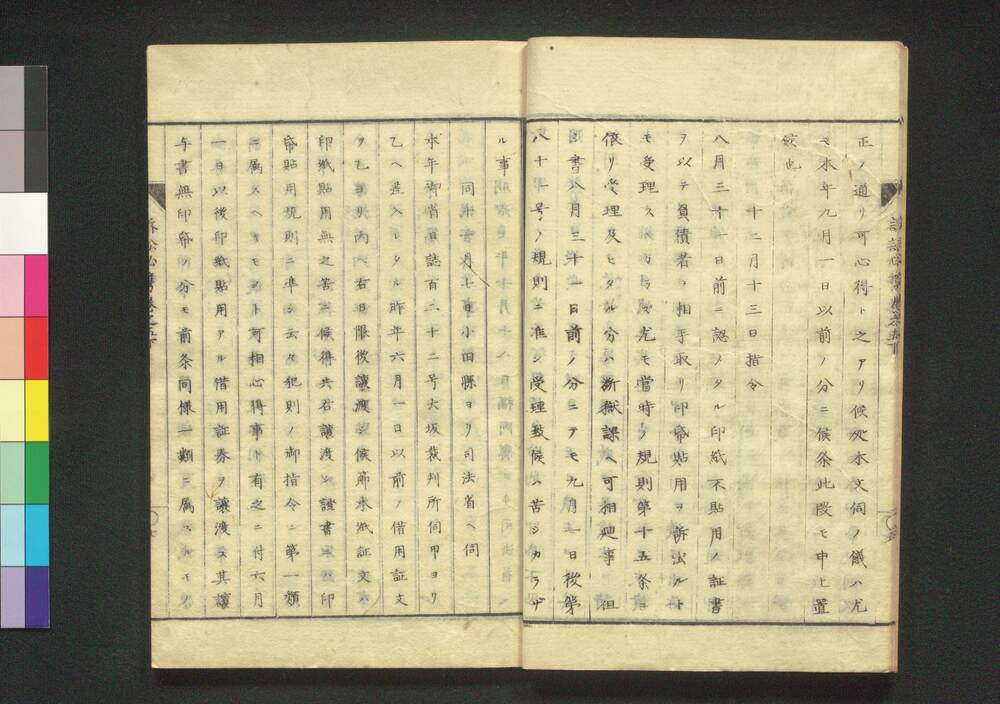 正ノ通リ可心得ト之アリ候処本文伺ノ儀ハ尤
モ本年九月一日以前ノ分ニ候条此段モ申上置
候也
十二月十三日指令
八月三十一日前ニ認メタル印紙不貼用ノ証書
ヲ以テ負積者ヲ相手取リ印帋貼用ヲ訴出ルト
モ受理スヘカラス尤モ當時ノ規則第十五条ニ
依リ受理及ヒタル分ハ断獄課ヘ可相廻事 但
書八月三十一日前ノ分ニテモ九月一日後第
八十一号ノ規則ニ准シ受理致候ハ苦シカラザ
ル事
同年 月七日小田縣ヨリ司法省ヘ伺
本年御省日誌百二十二号大坂裁判所伺甲ヨリ
乙ヘ差入レタル昨年六月一日以前ノ借用証文
ヲ乙ヨリ丙ヘ右日限後讓渡シ候節本紙証文ハ
印紙貼用無之苦ニ候得共右讓渡シ證書ニハ印
帋貼用規則ニ準シ云々犯則ノ御指令ニ第一類
ニ属スヘキモノト可相心得事ト有之ニ付六月
一日以後印紙貼用アル借用証券ヲ讓渡ス其讓
与書無印帋ノ分モ前条同様一類ニ属スルモノ